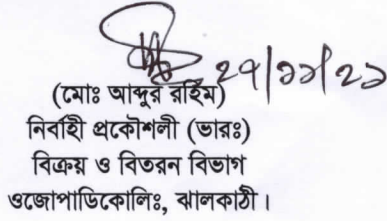 ২৭/১১/২১
(মোঃ আব্দুর রহিম)
নির্বাহী প্রকৌশলী (ভারঃ)
বিক্রয় ও বিতরন বিভাগ
ওজোপাডিকোলিঃ, ঝালকাঠী।